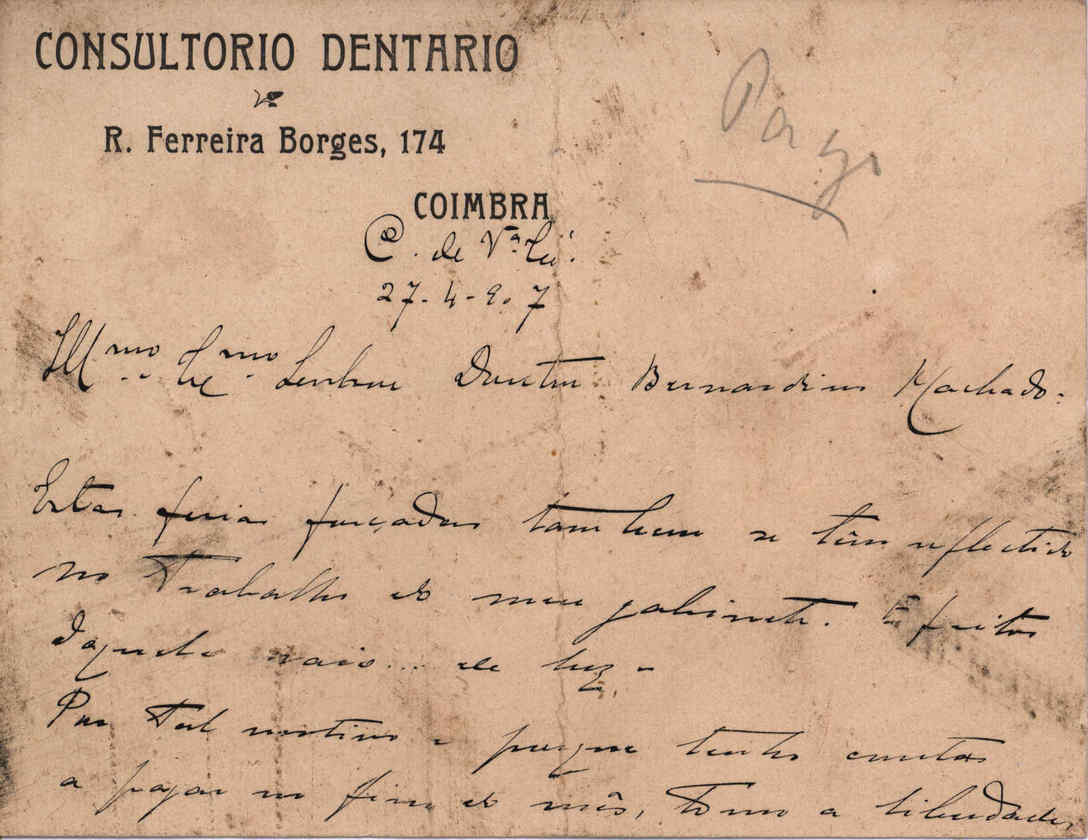 CONSULTORIO DENTARIO
R. Ferreira Borges, 174
Pago
COIMBRA
C. de V.ª
27-4-907
Ill.mo Ex.mo Senhor Doutor Bernardino Machado.
Estas ferias forçadas tambem se têm reflectido
no Trabalho do meu gabinete. Efeitos
daquele raio... de luz.
Por tal motivo e porque tenho contas
a pagar no fim do mês, tomo a liberdade,